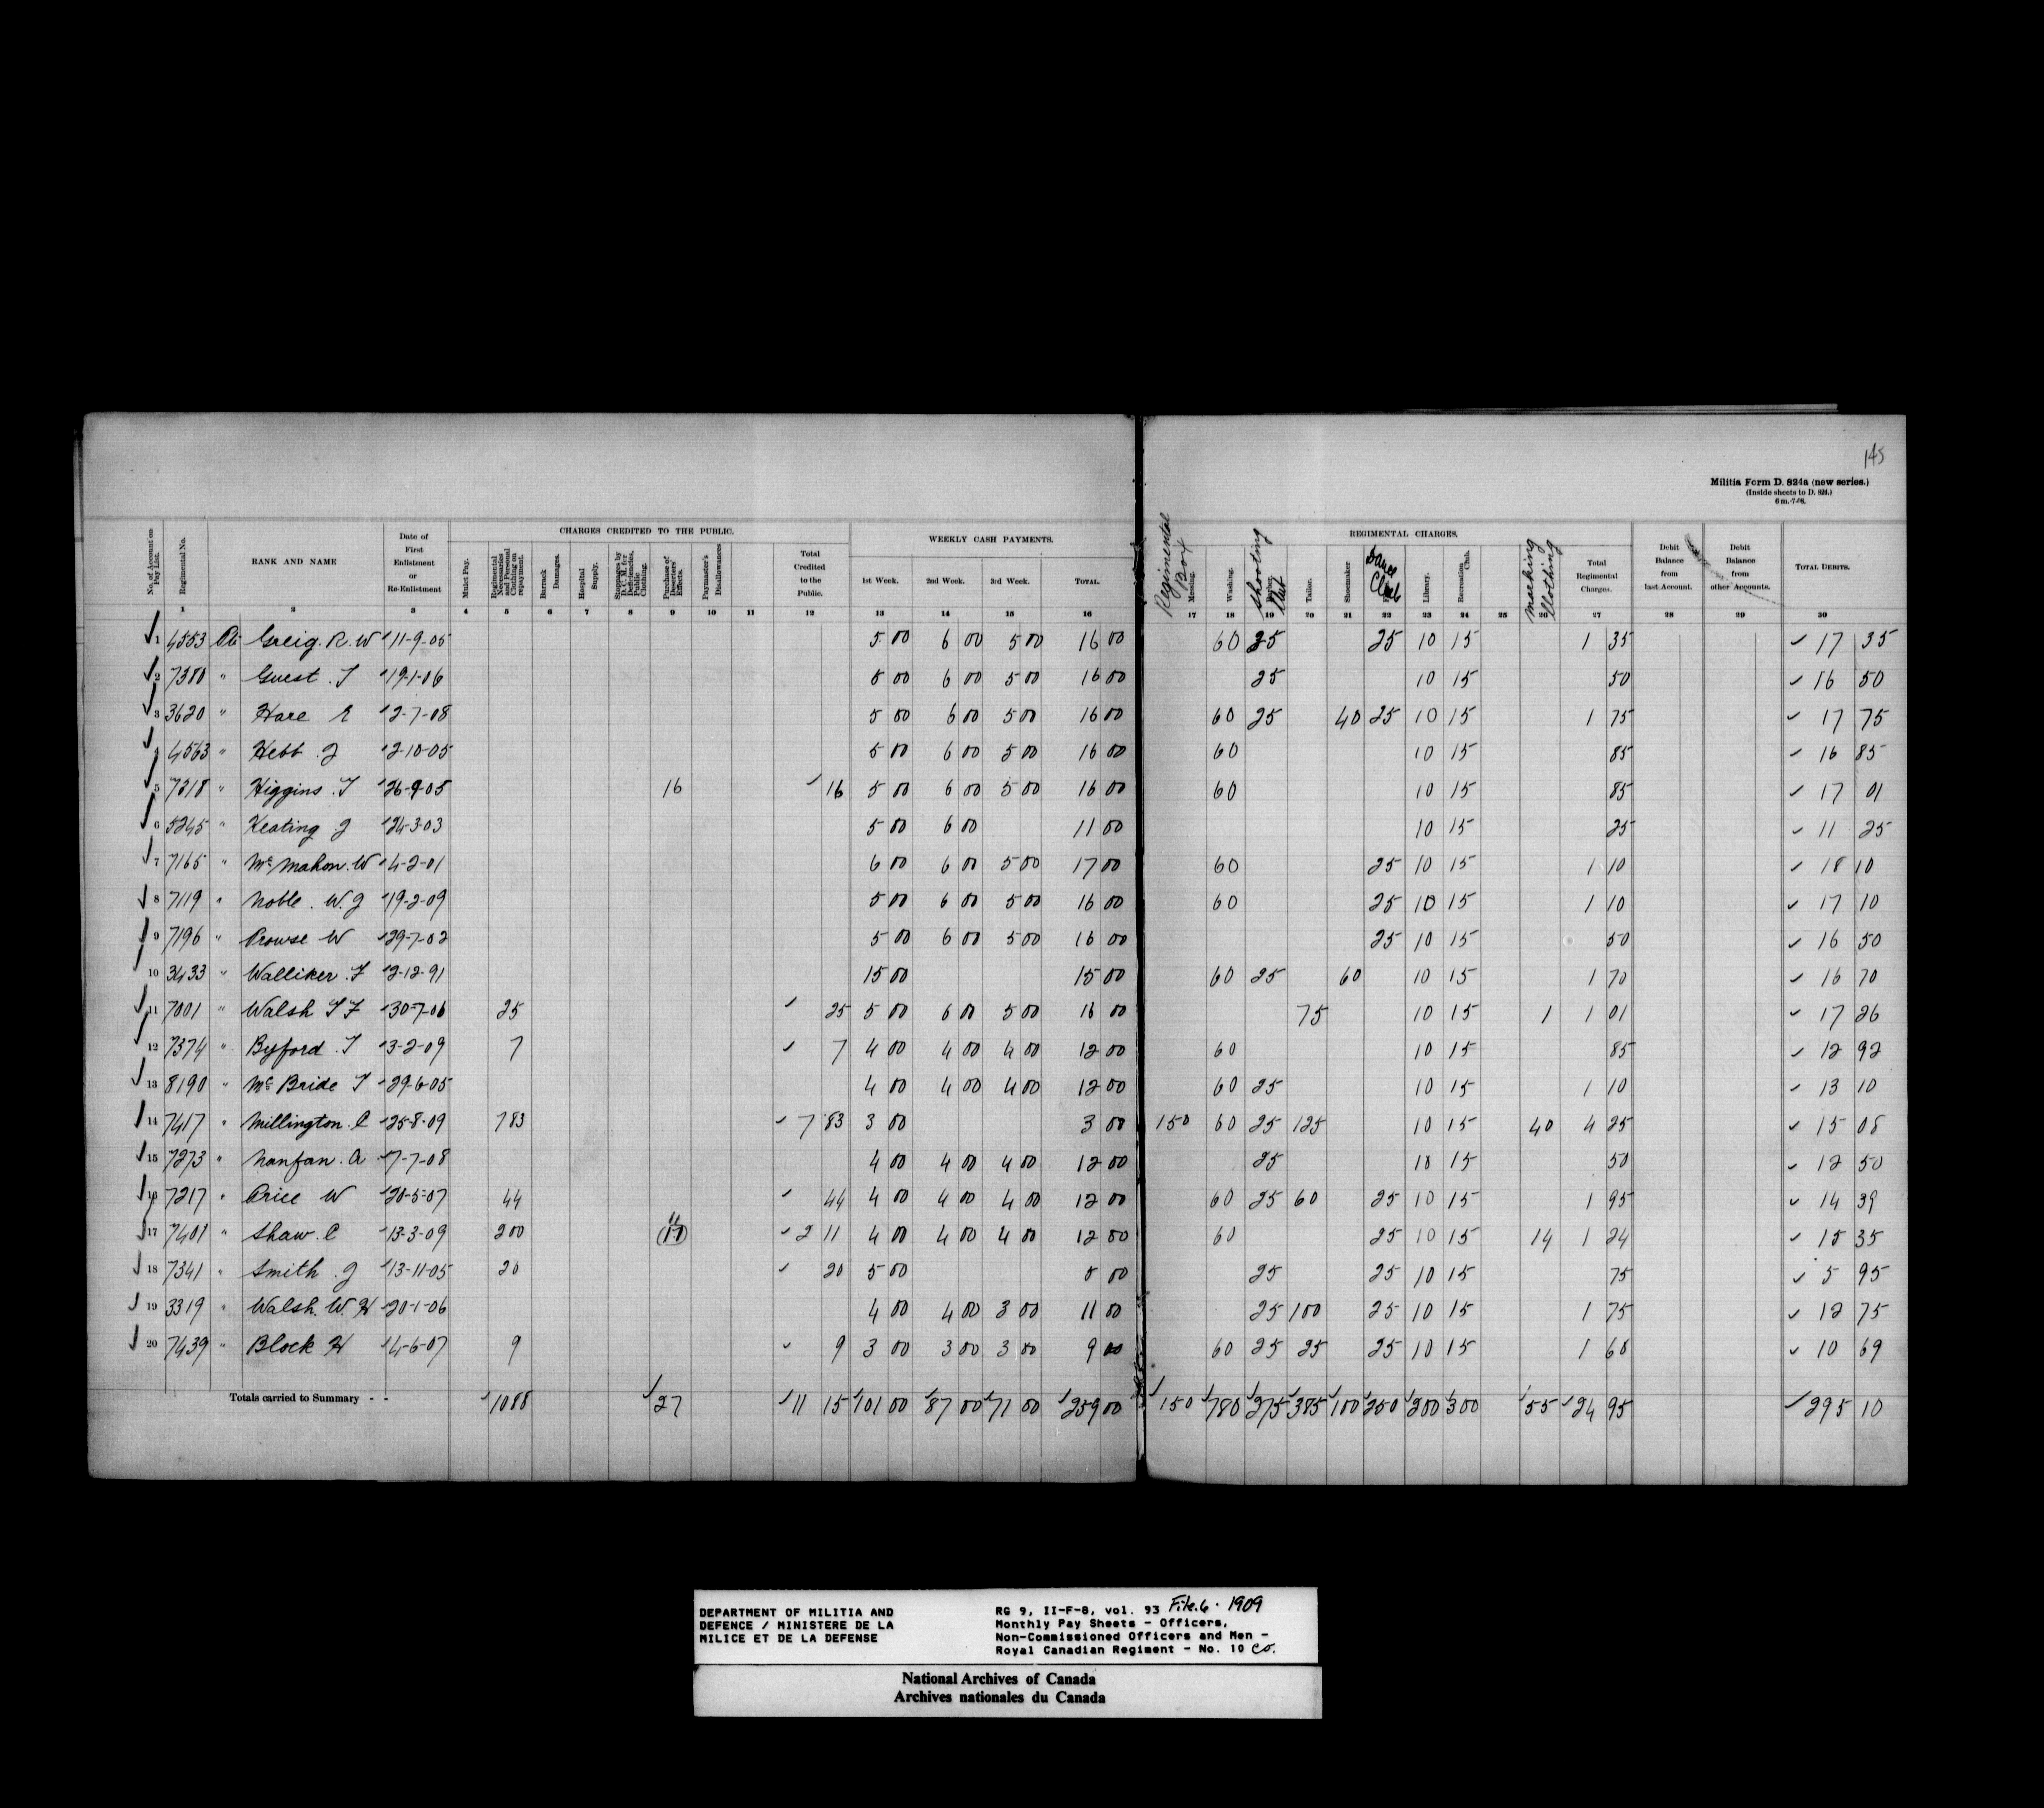 145
Militia Form D. 824a (new series.)
(Inside sheets to D. 824.)
6 m.-7-08.
CHARGES CREDITED TO THE PUBLIC. WEEKLY CASH PAYMENTS. REGIMENTAL CHARGES.
No. of Account on Pay List. Regimental No. RANK AND NAME Date of First Enlistment or Re-Enlistment Mulct Pay. Regimental Necessaries and Personal Clothing on repayment. Barrack Damages. Hospital Supply. Stoppages by D. C. M. for Deficiencies, Public Clothing. Purchase of Deserters' Effects. Paymaster's Disallowances Total Credited to the Public. 1st Week. 2nd Week. 3rd Week. TOTAL. Regimental Box Messing. Washing. Shooting Club Tailor. Shoemaker Dance Club Library. Recreation Club. marking Clothing Total Regimental Charges. Debit Balance from last Account. Debit Balance from other Accounts. TOTAL DEBITS.
1 2 3 4 5 6 7 8 9 10 11 12 13 14 15 16 17 18 19 20 21 22 23 24 25 26 27 28 29 30
1 4553 Pte Greig. R. W 11-9-05 5 00 6 00 5 00 16 00 60 25 25 10 15 1 35 17 35
2 7380 " Guest. T 19-1-06 5 00 6 00 5 00 16 00 25 10 15 50 16 50
3 3620 " Hare E 2-7-08 5 00 6 00 5 00 16 00 60 25 40 25 10 15 1 75 17 75
4563 " Hebb. J 2-10-05 5 00 6 00 5 00 16 00 60 10 15 85 16 85
5 7218 " Higgins. T 26-9-05 16 16 5 00 6 00 5 00 16 00 60 10 15 85 17 01
6 5245 " Keating J 24-3-03 5 00 6 00 11 00 10 15 25 11 25
7 7165 " McMahon. W 4-2-01 6 00 6 00 5 00 17 00 60 25 10 15 1 10 18 10
8 7119 " Noble. W. J 19-2-09 5 00 6 00 5 00 16 00 60 25 10 15 1 10 17 10
9 7196 " Prowse W 29-7-02 5 00 6 00 5 00 16 00 25 10 15 50 16 50
10 3433 " Walliker. F 2-12-91 15 00 15 00 60 25 60 10 15 1 70 16 70
11 7001 " Walsh T F 30-7-06 25 25 5 00 6 00 5 00 16 00 75 10 15 1 1 01 17 26
12 7374 " Byford. T 3-2-09 7 7 4 00 4 00 4 00 12 00 60 10 15 85 12 92
13 8190 " McBride T 29-6-05 4 00 4 00 4 00 12 00 60 25 10 15 1 10 13 10
14 7417 " Millington. C 25-8-09 7 83 7 83 3 00 3 00 1 50 60 25 125 10 15 40 4 25 15 08
15 7273 " Nanfan. A 7-7-08 4 00 4 00 4 00 12 00 25 10 15 50 12 50
16 7217 " Price W 20-5-07 44 44 4 00 4 00 4 00 12 00 60 25 60 25 10 15 1 95 14 39
17 7401 " Shaw. C 13-3-09 2 00 11 2 11 4 00 4 00 4 00 12 00 60 25 10 15 14 1 24 15 35
18 7341 " Smith. J 13-11-05 20 20 5 00 5 00 25 25 10 15 75 5 95
19 3319 " Walsh. W. H 20-1-06 4 00 4 00 3 00 11 00 25 100 25 10 15 1 75 12 75
20 7439 " Block H 14-6-07 9 9 3 00 3 00 3 00 9 00 60 25 25 25 10 15 1 60 10 69
Totals carried to Summary - - 10 88 27 11 15 101 00 87 00 71 00 259 00 1 50 7 80 2 75 3 85 1 00 2 50 2 00 3 00 55 24 95 295 10
DEPARTMENT OF MILITIA AND
DEFENCE / MINISTERE DE LA
MILICE ET DE LA DEFENSE
RG 9, II-F-8, vol. 93 File 6. 1909
Monthly Pay Sheets - Officers,
Non-Commissioned Officers and Men -
Royal Canadian Regiment - No. 10 Co.
National Archives of Canada
Archives nationales du Canada